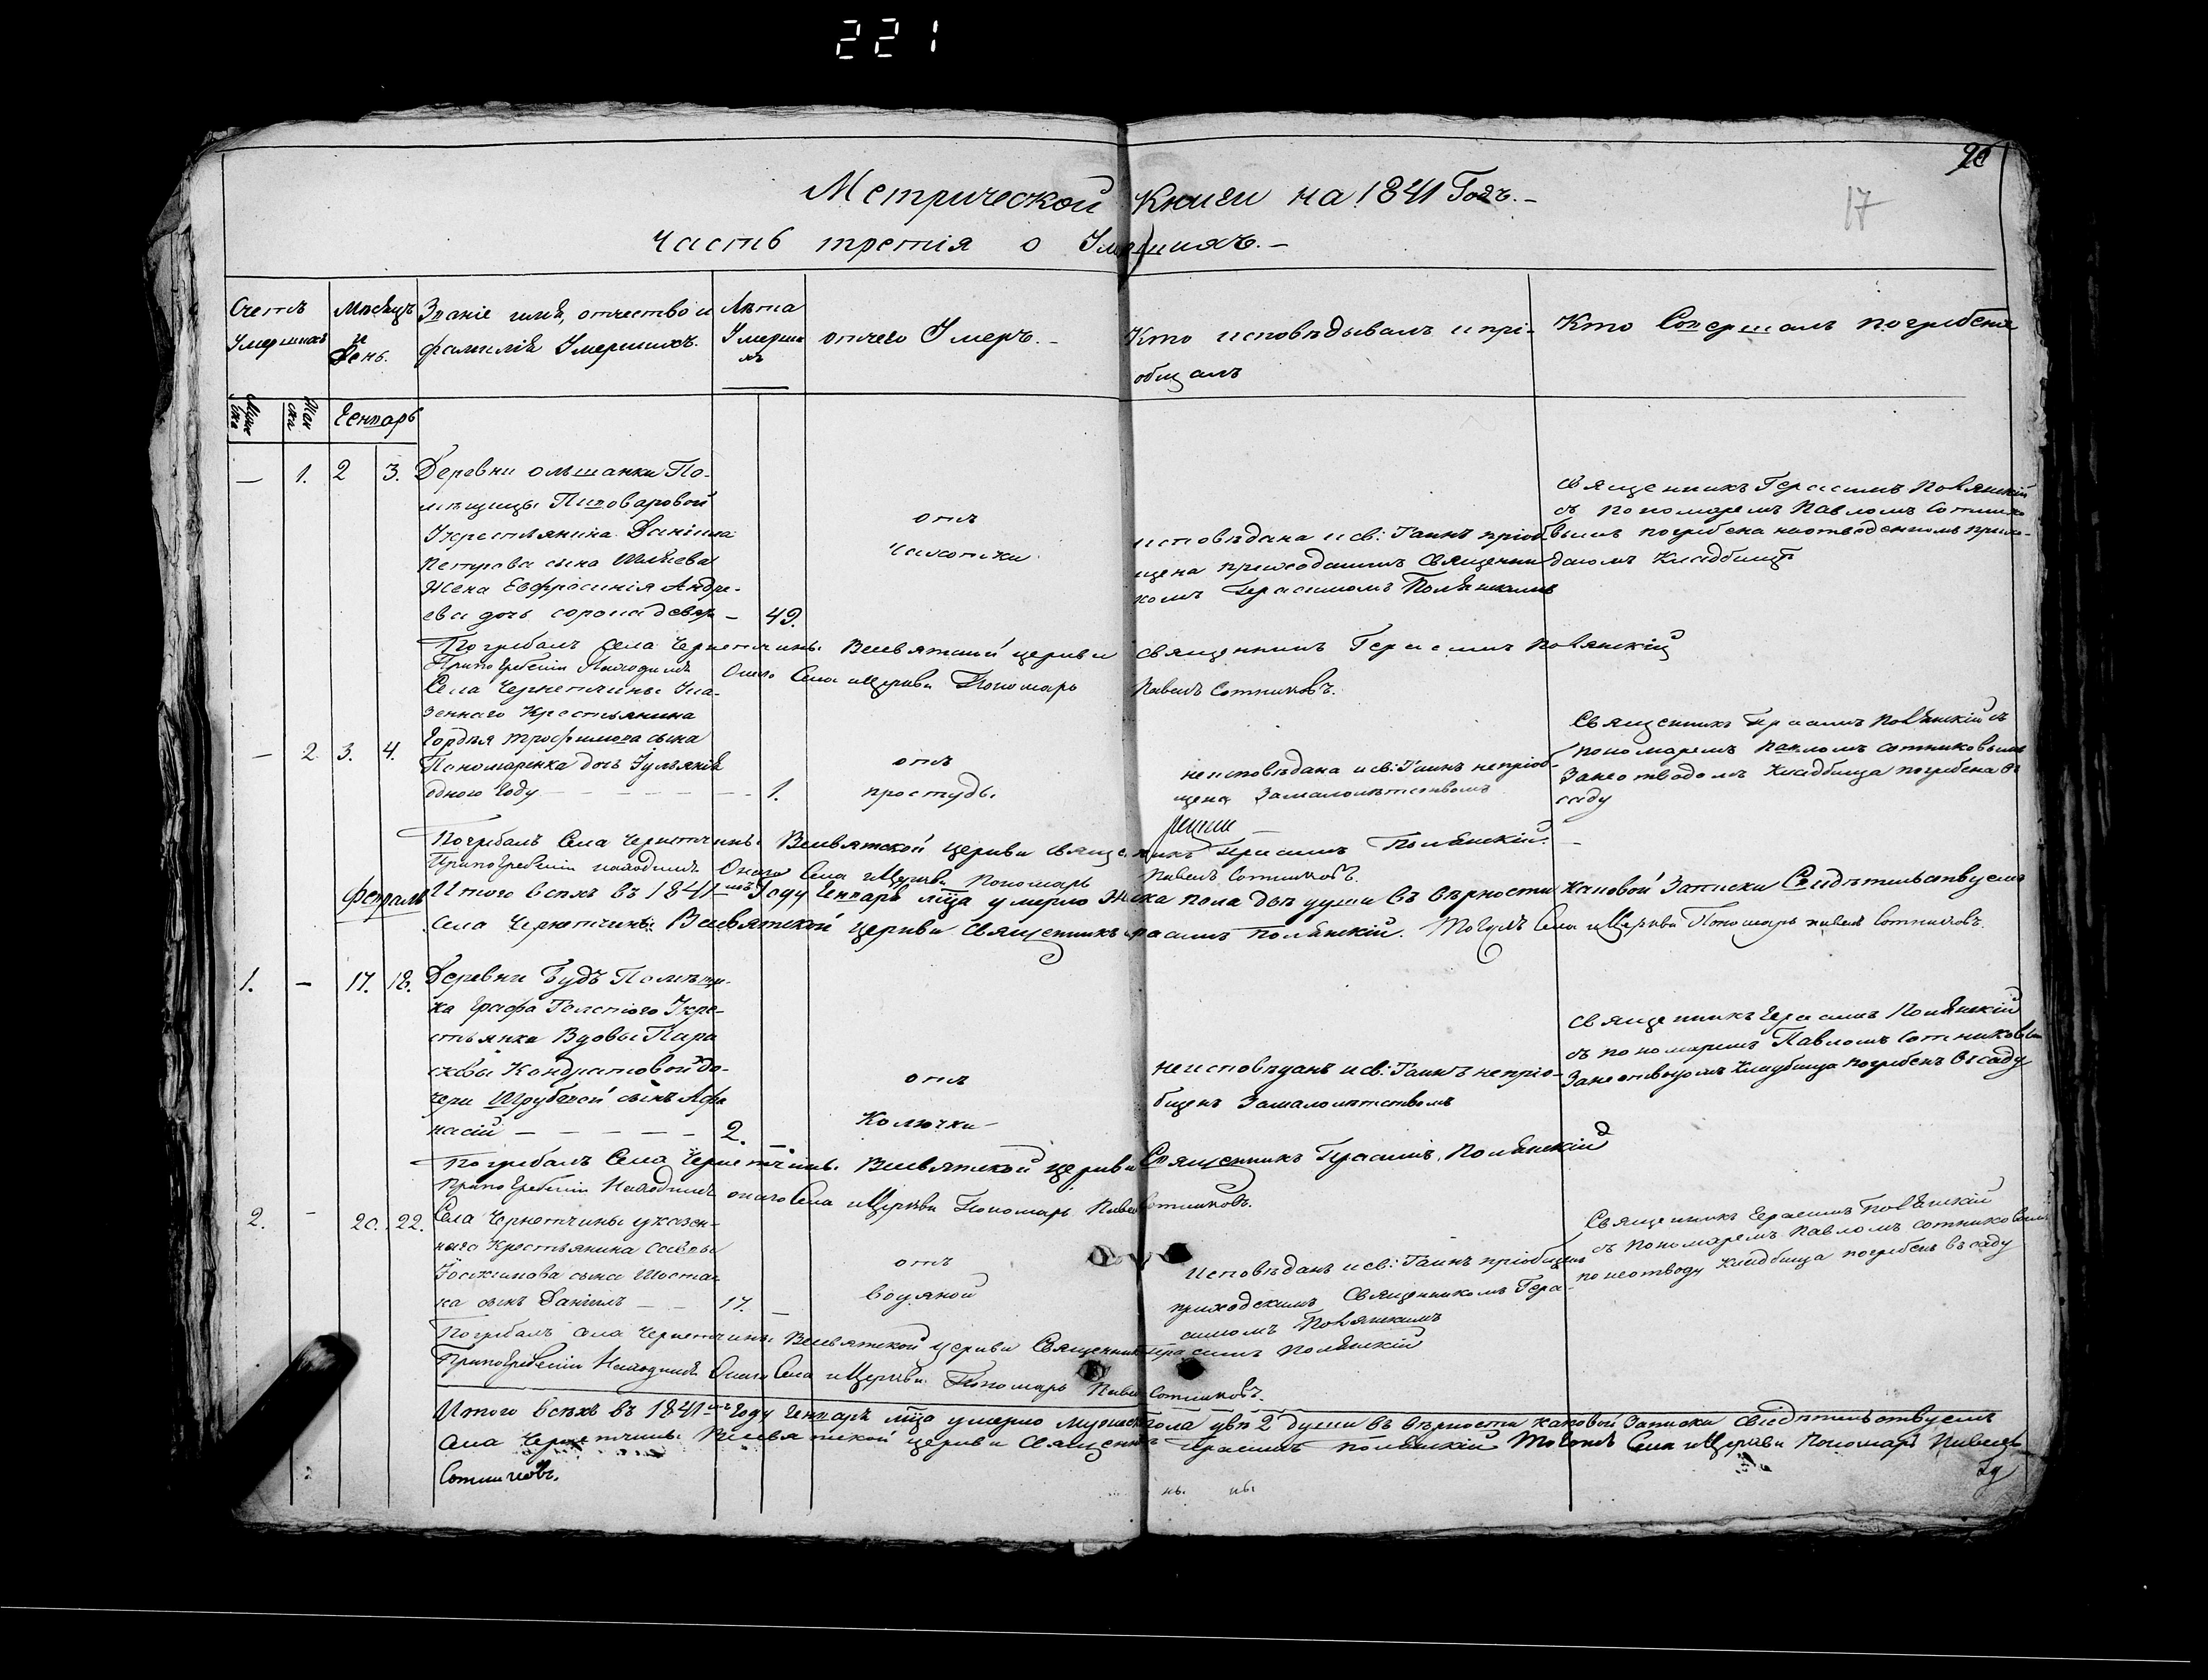 221
90
17
Метрической Книги на 1841 Годъ.-
Часть третія о Умершихъ.-
Счетъ Умершихъ
Мѣсяцъ и День.
Званіе имя, отчество и фамилія Умершихъ.
Лѣта Умершихъ
отчего Умеръ.-
Кто исповѣдывалъ и пріобщалъ
Кто Совершалъ погребеніе
Мужеска
Женска
Генварь
— 1. 2 3. Деревни ольшанки По-
мѣщицы Пивоваровой
крестьянина Даніила
Петрова сына
жена Евфросинія Андре-
ева дочь сорока девя — 49.
отъ
чахотки
исповѣдана и св: Таинъ пріоб-
щена приходскимъ Священни-
комъ Герасимомъ Полянскимъ
священникъ Герасимъ Полянскій
съ пономаремъ Павломъ Сотнико-
вымъ погребена на отведенномъ прихо-
дскомъ Кладбищѣ
Погребалъ села Чернетчины Всесвятской церкви священникъ Герасимъ Полянскій
При погребеніи Находился Онаго Села и Церкви Пономарь Павелъ Сотниковъ.
— 2 3. 4. Села Чернетчины Ка-
зеннаго Крестьянина
Гордѣя трофимова сына
Пономаренка дочь Іульянія
одного году — — — — 1.
отъ
простуды
не исповѣдана и св: Таинъ непріоб-
щена За малолѣтствомъ
Священникъ Герасимъ Полянскій съ
пономаремъ Павломъ сотниковымъ
За неотводомъ Кладбища погребена въ
саду
Погребалъ Села Чернетчины Всесвятской церкви священникъ Герасимъ Полянскій.
При погребеніи находился Онаго Села и Церкви Пономарь Павелъ Сотниковъ.
Итого всѣхъ въ 1841мъ Году Генварѣ мца умерло Женска пола двѣ души въ вѣрности каковой Записки Свидѣтельствуемъ
Февраль
Села Чернетчины Всесвятской церкви Священникъ Герасимъ Полянскій. Тогожъ Села и Церкви Пономарь павелъ Сотниковъ.
1. — 17. 18. Деревни Будъ Помѣщи-
ка Графа Толстого кре-
стьянка Вдовы Пара
сквы Кондратовой до-
чери Шрубатой сынъ Афа
насій — — — — — 2. —
отъ
Колючки —
не исповѣданъ и св: Таинъ непріо-
бщенъ За малолѣтствомъ
священникъ Герасимъ Полянскій
съ пономаремъ Павломъ Сотниковым
За неотводомъ Кладбища погребенъ въ саду
Погребалъ Села Чернетчины Всесвятской церкви Священникъ Герасимъ Полянскій
При погребеніи Находился онаго Села и Церкви Пономарь Павелъ Сотниковъ.
2. — 20. 22. Села Чернетчины указен-
наго Крестьянина Саввы
Іоакимова сына Шоста
ка сынъ Даніилъ — — 17. —
отъ
водяной
Исповѣданъ и св: Таинъ пріобщенъ
приходскимъ Священникомъ Гера-
симомъ Полянскимъ
Священникъ Герасимъ Полянскій
съ Пономаремъ Павломъ сотниковымъ
по неотводу Кладбища погребенъ въ саду
Погребалъ села Чернетчины Всесвятской церкви Священникъ Герасимъ Полянскій
При погребеніи Находился Онаго Села и Церкви Пономарь Павелъ Сотниковъ.
Итого всѣхъ въ 1841мъ Году Генварѣ мца умерло мужеска пола двѣ 2 души въ вѣрности каковой Записки свидѣтельствуемъ
Села Чернетчины Всесвятской церкви Священникъ Герасимъ Полянскій Тогожъ Села и Церкви Пономарь Павелъ
Сотниковъ.